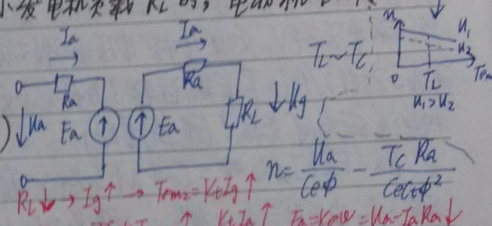 小发电机负载 RL 时，电动机
Ia
Ia
Ra
Ra
Ua
Ea
Ea
RL
Ug
TL ~ Tc
n
U1
U2
0
TL
Tem
U1 > U2
n = Ua/(CeΦ) - TcRa/(CeCtΦ²)
RL↓ → Ig↑ → Tem2 = KtIg↑
↑ KtIa↑ Ea = Keω = Ua - IaRa↓